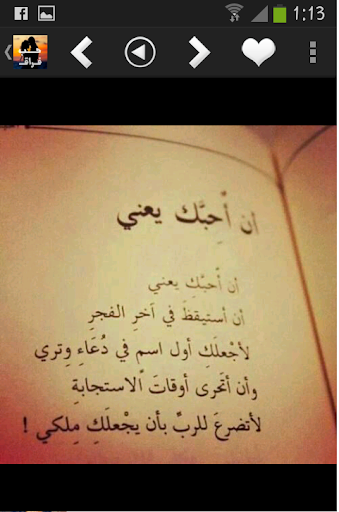 1:13
حب
فراق
ان أُحِبَّك يعني
أن أُحبَّكِ يعني
أن أستيقظَ في آخرِ الفجرِ
لأجْعلَكِ أول اسمٍ في دُعَاءِ وِتري
وأن أتحَرى أوقاتَ الاستجابةِ
لأتضرعَ للربِّ بأن يجْعلَكِ مِلكي !